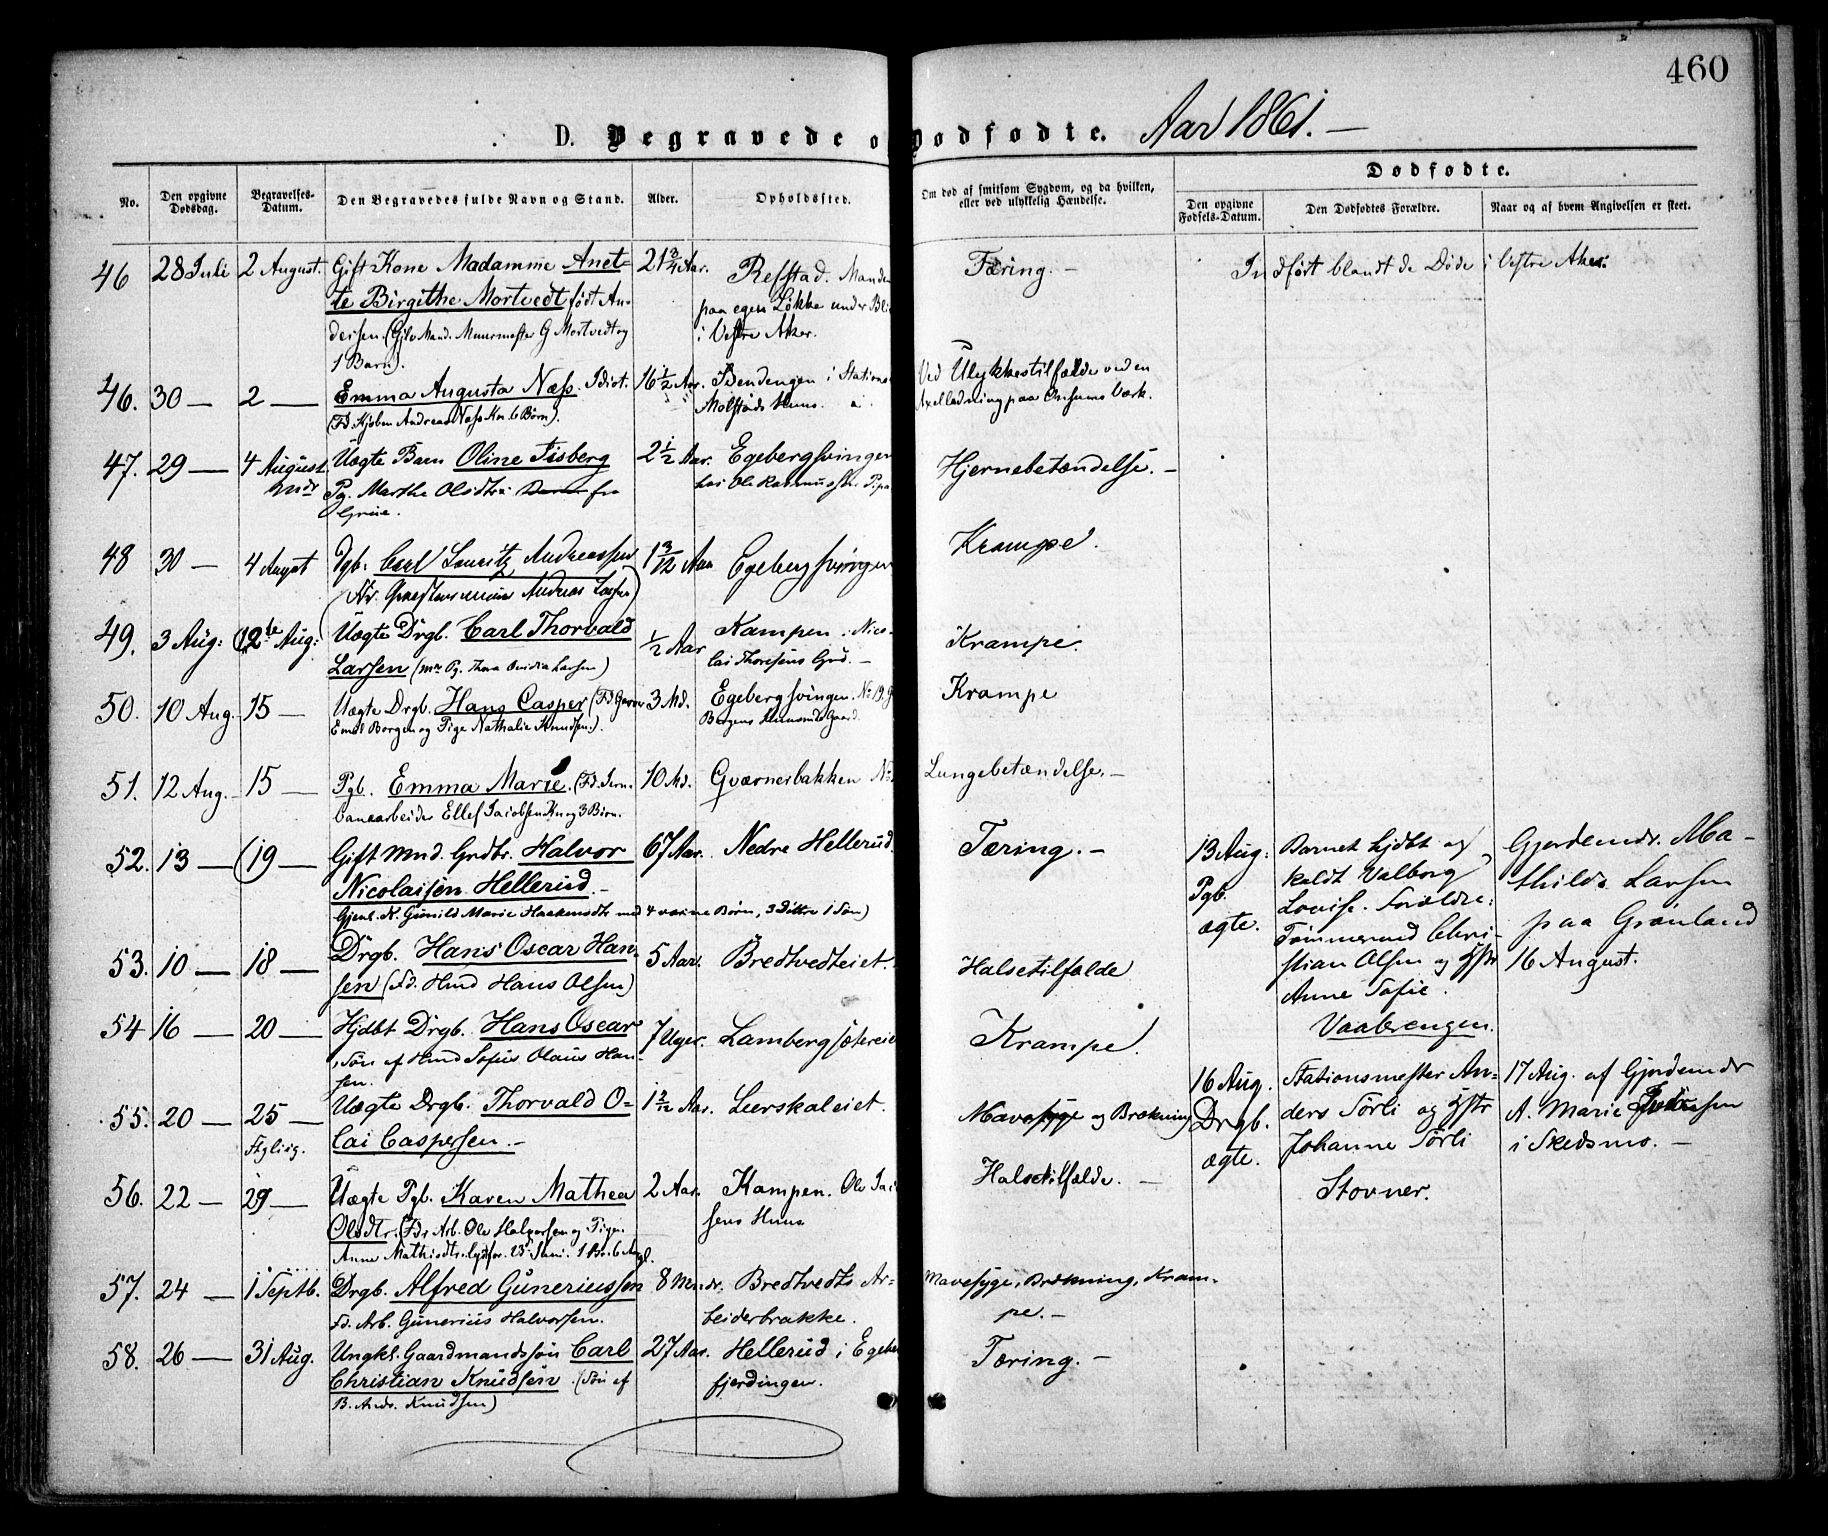 460
D. Begravede o Dødfødte. Aar 1861. —
No.
Den opgivne Dødsdag.
Begravelses-Datum.
Den Begravedes fulde Navn og Stand.
Alder.
Opholdssted.
Om død af smitsom Sygdom, og da hvilken, eller ved ulykkelig Hændelse.
Dødfødte.
Den opgivne Fødsels-Datum.
Den Dødfødtes Forældre.
Naar og af hvem Angivelsen er skeet.
46 28 Juli 2 August. Gift Kone Madamme Anet- 21 3/4 Aar. Refstad. Manden Tæring. — Indført blandt de Døde i Vestre Aker.
te Birgithe Mortvedt født An- paa egen Løkke under Bli
dersen. (Gjlv Mand. Muurmester G Mortvedt og i Vestre Aker.
1 Barn).
46. 30 — 2 — Emma Augusta Næss. Idiot. 16 1/2 Aar. Bendengen i Stations Ved Ulykkestilfælde ved en
(Fd. Kjøbm Andreas Næss Kn 6 Børn). Molstads Huus. Axelladning paa Værk.
47. 29 — 4 August Uægte Barn Oline Fisberg 2 1/2 Aar. Egebergsvingen Hjernebetændelse. —
Pg. Marthe Olsdtr. fra hos Ole Rasmusssn.
Grue.
48 30 — 4 August Dgb. Carl Lauritz Andreassen 1 3/12 Aar Egebergsvingen Krampe.
Andreas Larsen)
49. 3 Aug: (12te Aug: Uægte Drgb. Carl Thorvald 1/2 Aar Kampen. Nico- Krampe.
Larsen (mr Pg. Thora Ovidia Larsen) lai Thoresens Grd. —
50. 10 Aug. 15 — Uægte Drgb. Hans Casper (Fd. Garver 3 Md. Egebergsvingen. No 19. Krampe
Emil Borgen og Pige Nathalie Knudsen.) Borgens Gaard.
51. 12 Aug. 15 — Pgb. Emma Marie. (Fd. Jern- 10 Md. Gværnerbakken No Lungebetændelse. —
banearbeider Ellef Jacobsen Kn og 3 Børn.
52. 13 — (19 — Gift Mnd. Grdbr. Halvor 67 Aar. Nedre Hellerud. Tæring. — 13 Aug: Barnet hjdbt og Gjordemdr. Ma-
Nicolaisen Hellerud. — Pgb. kaldt Valborg thilde Larsen
Gjenl. K. Gunild Marie Haakensdtr med 4 voxne Børn, 3 Døttre 1 Søn) ægte. Lovise. Forældre: paa Grønland
53. 10 — 18 — Drgb. Hans Oscar Han- 5 Aar. Bredtvedteiet. Halsetilfælde Tømmermd Chri- 16 August.
sen (Fd. Hmd Hans Olsen) stian Olsen og Hstr
Anne Sofie.
54 16 — 20 — Hjdbt Drgb. Hans Oscar 7 Uger. Lambergsætereie Krampe. Vaalerengen.
Søn af Hmd Sofus Olaus Han-
sen.
16 Aug. Stationsmester An- 17 Aug. af Gjordemdr
55. 20 — 25 — Uægte Drgb. Thorvald O- 1 2/12 Aar. Leerskaleiet. Mavesyge og Brækning Drgb. ders Sørli og Hstr A. Marie Iversen
lai Caspersen. — ægte. Johanne Sørli i Skedsmo. —
Stovner.
56. 22 — 29 — Uægte Pgb. Karen Mathea 2 Aar. Kampen. Ole Jac Halsetilfælde. —
Olsdtr. (Fdr Arb. Ole Halvorsen og Pige sens Huus
Anne Mathisdtr.
57. 24 — 1 Septb. Drgb. Alfred Gunerius​sen 8 Mndr. Bredtvedts Ar- Mavesyge, Brækning, Kram-
Fd. Arb. Gunerius Halvorsen. beiderbrakke. pe. —
58. 26 — 31 Aug. Ungkl. Gaardmandssøn Carl 27 Aar. Hellerud i Egeber Tæring. —
Christian Knudsen (Søn af fjerdingen.
B. Andr. Knudsen)